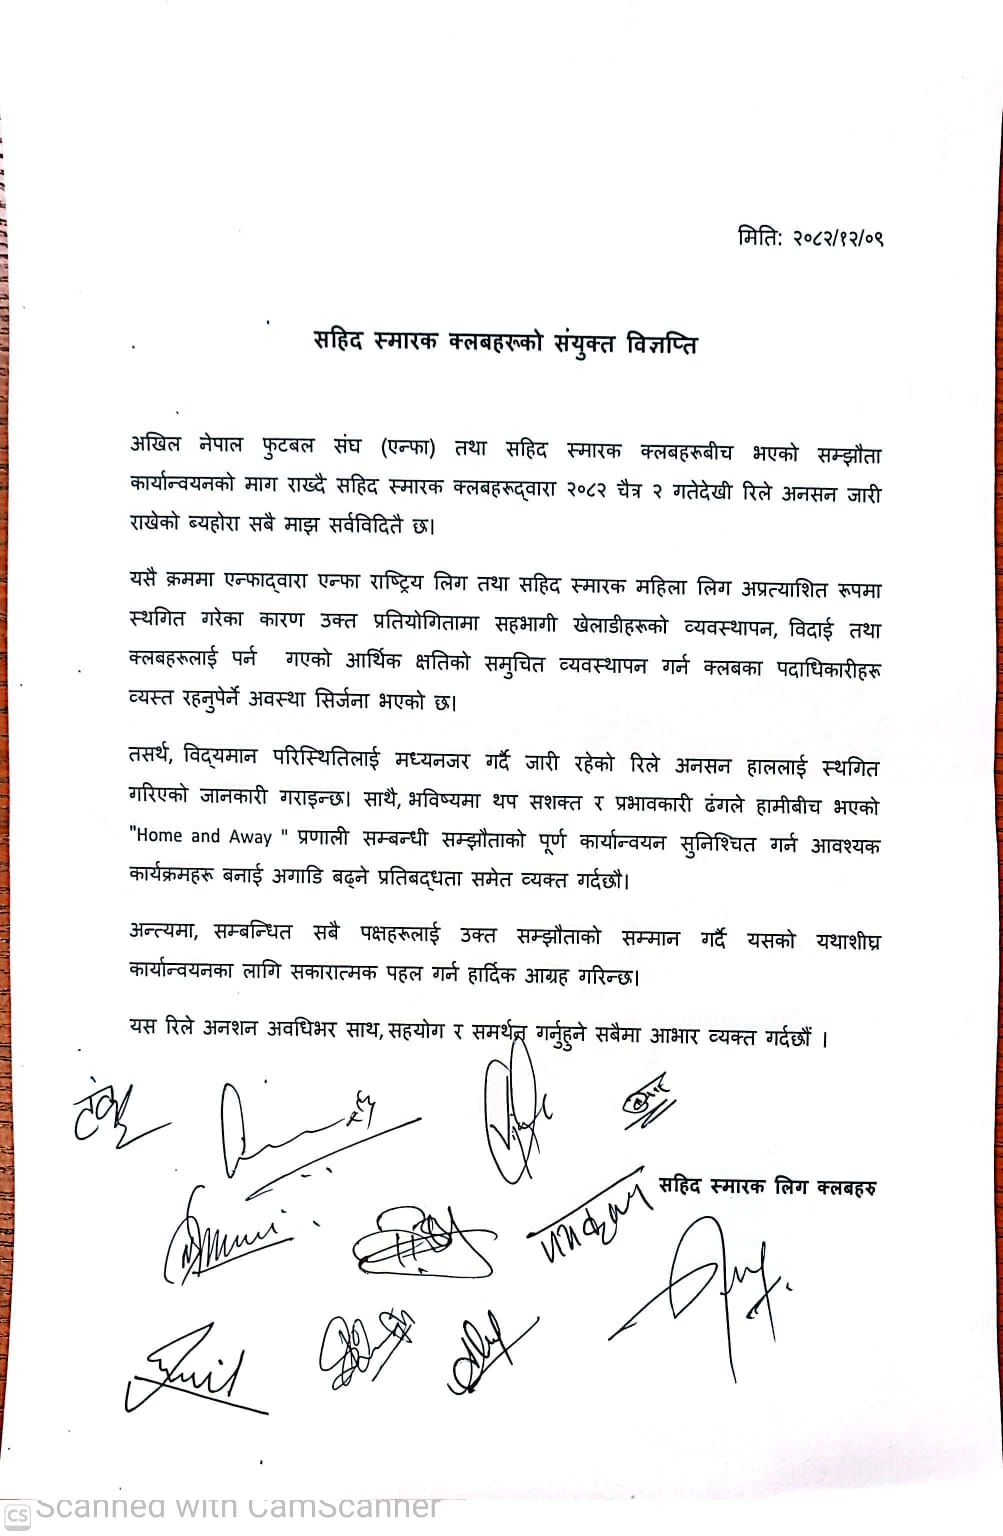 मिति: २०८२/१२/०९
सहिद स्मारक क्लबहरूको संयुक्त विज्ञप्ति
अखिल नेपाल फुटबल संघ (एन्फा) तथा सहिद स्मारक क्लबहरूबीच भएको सम्झौता
कार्यान्वयनको माग राख्दै सहिद स्मारक क्लबहरूद्वारा २०८२ चैत्र २ गतेदेखी रिले अनसन जारी
राखेको ब्यहोरा सबै माझ सर्वविदितै छ।
यसै क्रममा एन्फाद्वारा एन्फा राष्ट्रिय लिग तथा सहिद स्मारक महिला लिग अप्रत्याशित रूपमा
स्थगित गरेका कारण उक्त प्रतियोगितामा सहभागी खेलाडीहरूको व्यवस्थापन, विदाई तथा
क्लबहरूलाई पर्न गएको आर्थिक क्षतिको समुचित व्यवस्थापन गर्न क्लबका पदाधिकारीहरू
व्यस्त रहनुपेर्ने अवस्था सिर्जना भएको छ।
तसर्थ, विद्यमान परिस्थितिलाई मध्यनजर गर्दै जारी रहेको रिले अनसन हाललाई स्थगित
गरिएको जानकारी गराइन्छ। साथै, भविष्यमा थप सशक्त र प्रभावकारी ढंगले हामीबीच भएको
"Home and Away " प्रणाली सम्बन्धी सम्झौताको पूर्ण कार्यान्वयन सुनिश्चित गर्न आवश्यक
कार्यक्रमहरू बनाई अगाडि बढ्ने प्रतिबद्धता समेत व्यक्त गर्दछौ।
अन्त्यमा, सम्बन्धित सबै पक्षहरूलाई उक्त सम्झौताको सम्मान गर्दै यसको यथाशीघ्र
कार्यान्वयनका लागि सकारात्मक पहल गर्न हार्दिक आग्रह गरिन्छ।
यस रिले अनशन अवधिभर साथ, सहयोग र समर्थन गर्नुहुने सबैमा आभार व्यक्त गर्दछौं ।
सहिद स्मारक लिग क्लबहरु
CS Scanned with CamScanner